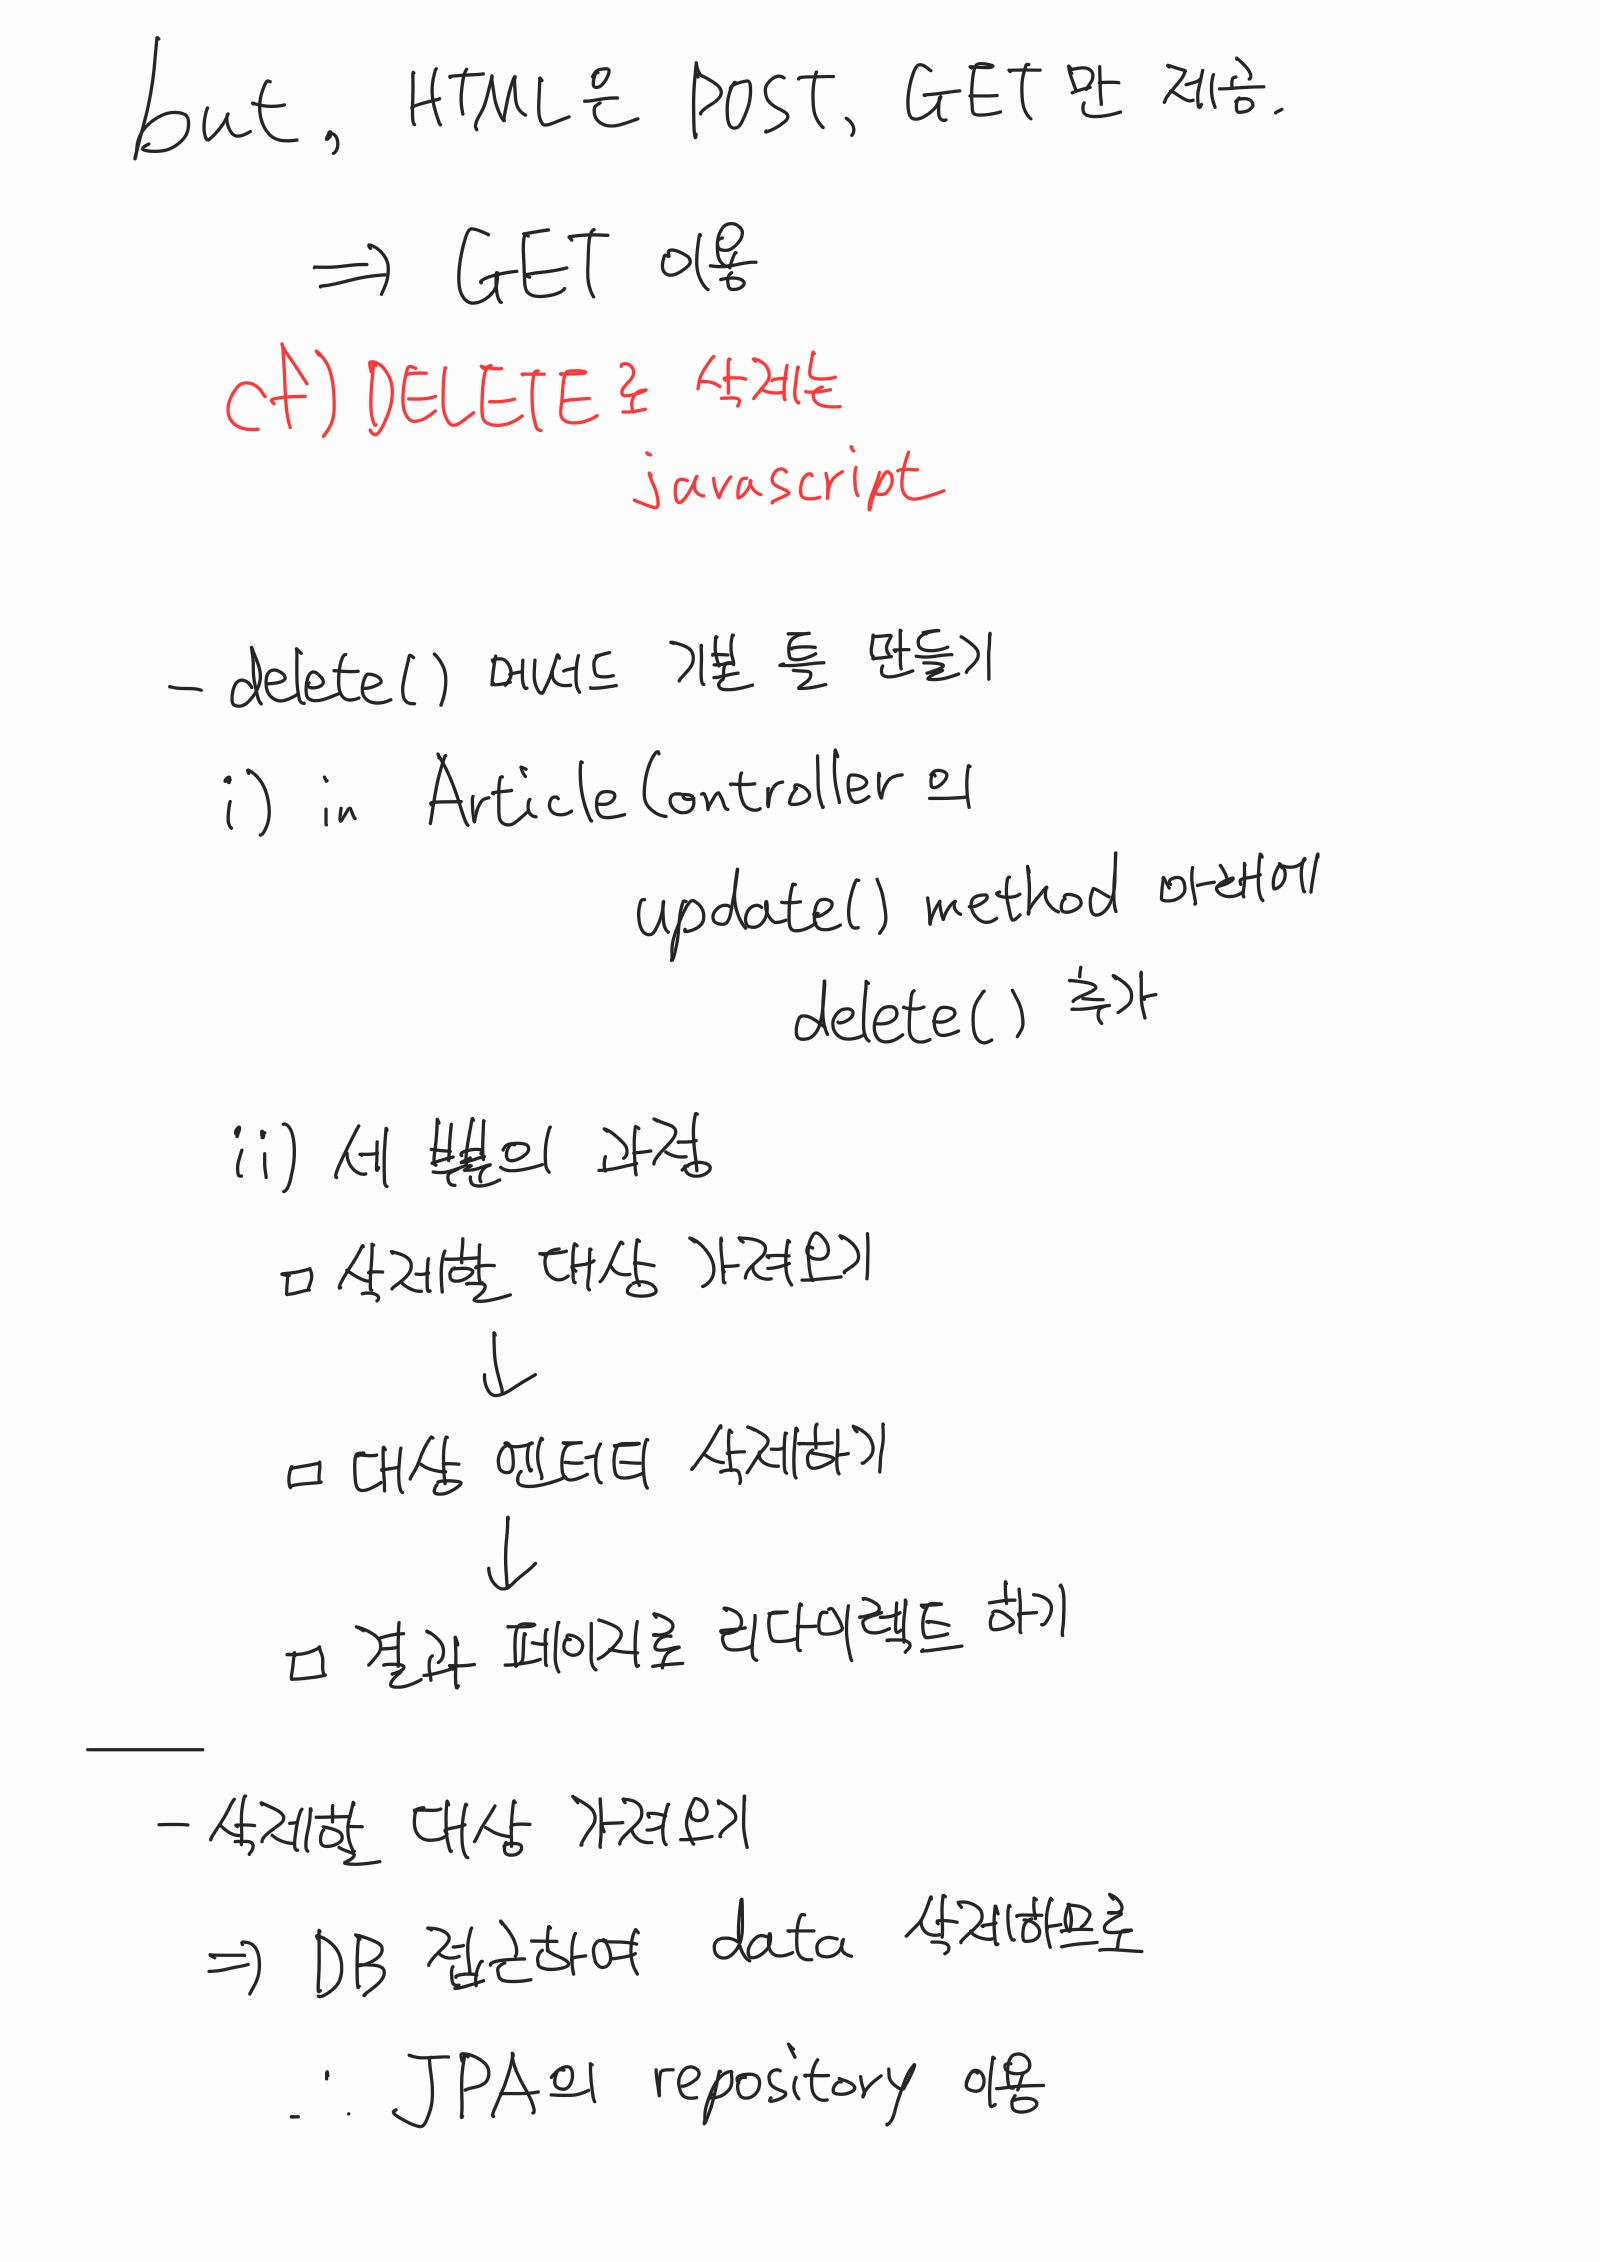 but, HTML은 POST, GET만 제공.
⇒ GET 이용
cf) DELETE로 삭제는
javascript
- delete() 메서드 기본 틀 만들기
i) in ArticleController의
update() method 아래에
delete() 추가
ii) 세 분의 과정
□ 삭제할 대상 가져오기
↓
□ 대상 엔터티 삭제하기
↓
□ 결과 페이지로 리다이렉트 하기
- 삭제할 대상 가져오기
⇒ DB 접근하여 data 삭제하므로
∴ JPA의 repository 이용